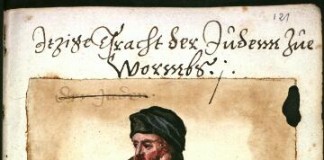 121
Jtzige Tracht der Juden Zue
Wormbs
der Juden.